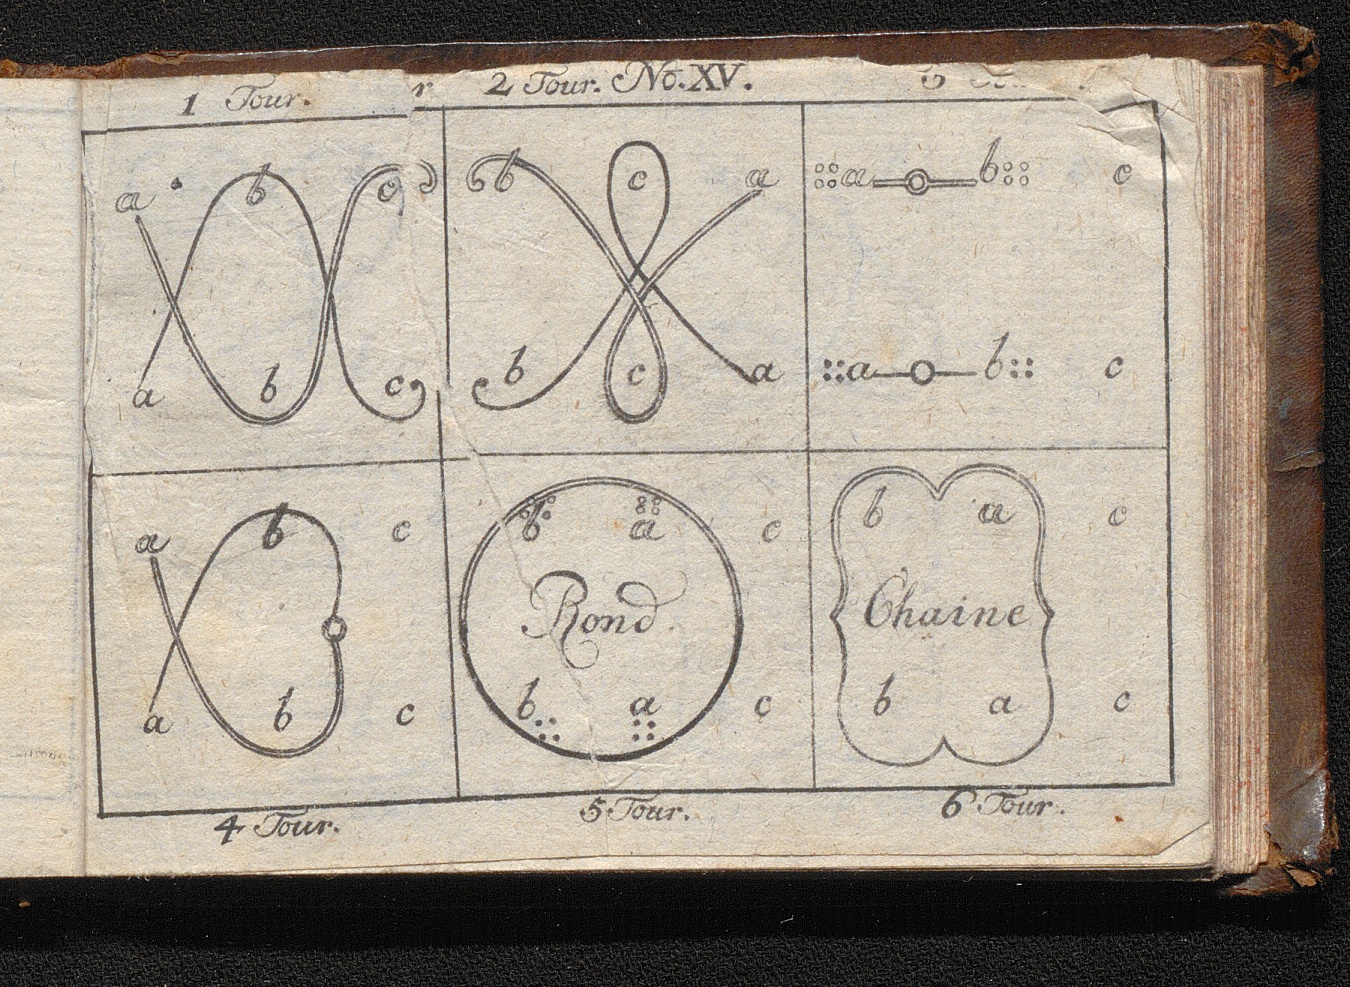 1 Tour.
2 Tour. No. XV.
a b c
a b c
b c a
b c a
a b c
a b c
a b c
a b c
b a c
Rond
b a c
b a c
Chaine
b a c
4 Tour.
5 Tour.
6 Tour.